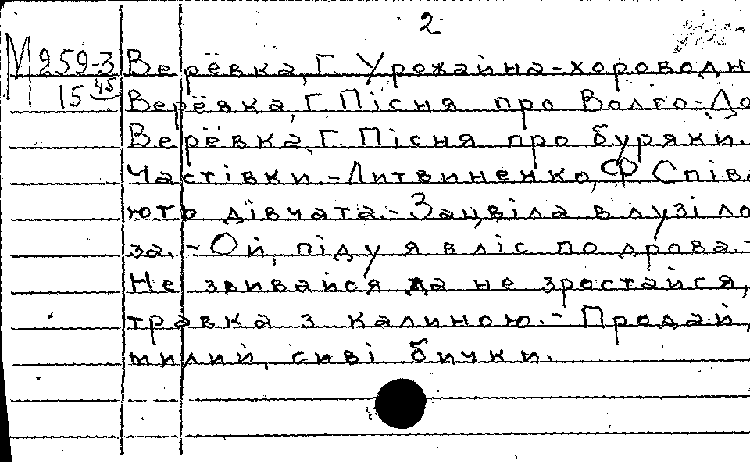 2
М 259-3 Верёвка, Г. Урожайна-хороводн
15 45 Верёвка, Г. Пісня про Волго-До
Верёвка, Г. Пісня про буряки.-
Частівки.-Литвиненко, Ф Співа
ютр дівчата.-Зацвіла в лузі ло
за.-Ой, піду я в ліс по дрова.-
Не звивайся та не зростайся,
травка з калиною.-Продай,
милий, сиві бички.